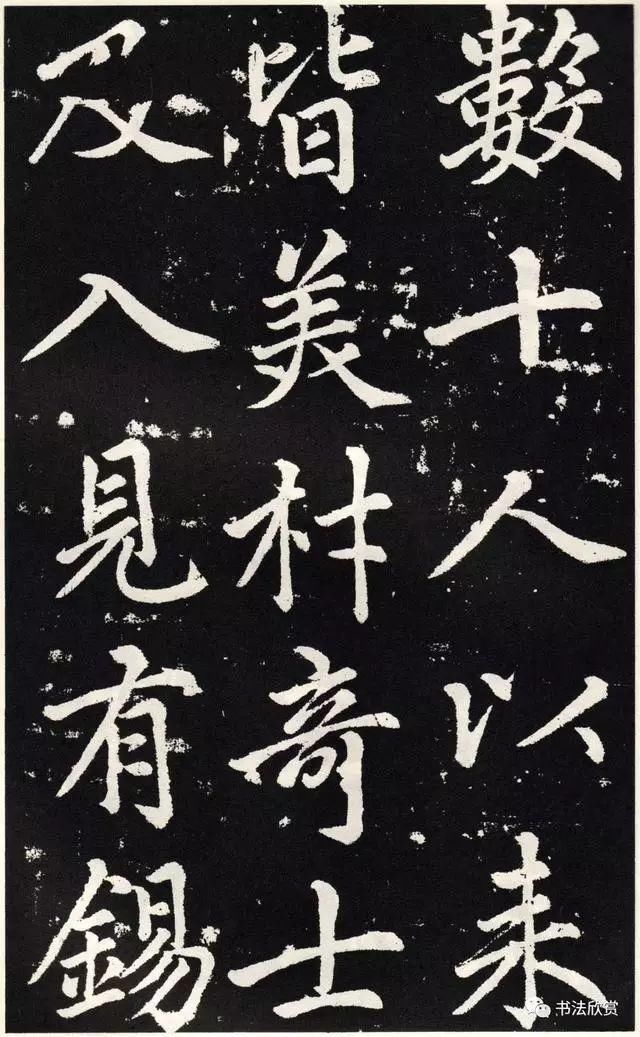 數十人以来
皆美材奇士
及入見有錫
书法欣赏